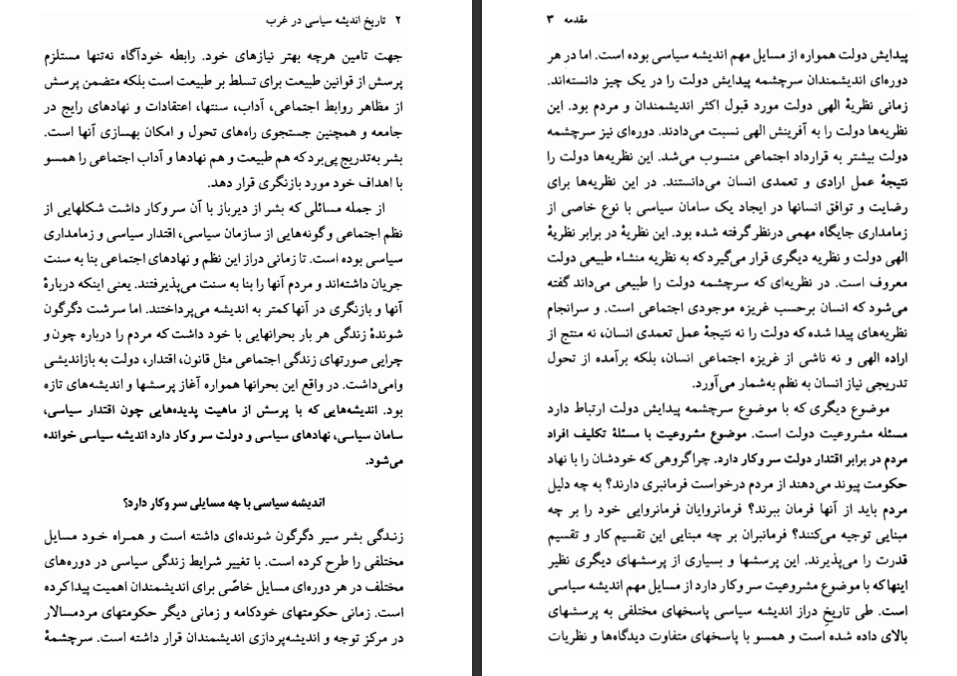 ۲ تاریخ اندیشه سیاسی در غرب
جهت تامین هرچه بهتر نیازهای خود. رابطه خودآگاه نه‌تنها مستلزم
پرسش از قوانین طبیعت برای تسلط بر طبیعت است بلکه متضمن پرسش
از مظاهر روابط اجتماعی، آداب، سنتها، اعتقادات و نهادهای رایج در
جامعه و همچنین جستجوی راه‌های تحول و امکان بهسازی آنها است.
بشر به‌تدریج پی‌برد که هم طبیعت و هم نهادها و آداب اجتماعی را همسو
با اهداف خود مورد بازنگری قرار دهد.
از جمله مسائلی که بشر از دیرباز با آن سروکار داشت شکلهایی از
نظم اجتماعی و گونه‌هایی از سازمان سیاسی، اقتدار سیاسی و زمامداری
سیاسی بوده است. تا زمانی دراز این نظم و نهادهای اجتماعی بنا به سنت
جریان داشته‌اند و مردم آنها را بنا به سنت می‌پذیرفتند. یعنی اینکه دربارۀ
آنها و بازنگری در آنها کمتر به اندیشه می‌پرداختند. اما سرشت دگرگون
شوندۀ زندگی هر بار بحرانهایی با خود داشت که مردم را درباره چون و
چرایی صورتهای زندگی اجتماعی مثل قانون، اقتدار، دولت به بازاندیشی
وامی‌داشت. در واقع این بحرانها همواره آغاز پرسشها و اندیشه‌های تازه
بود. اندیشه‌هایی که با پرسش از ماهیت پدیده‌هایی چون اقتدار سیاسی،
سامان سیاسی، نهادهای سیاسی و دولت سروکار دارد اندیشه سیاسی خوانده
می‌شود.
اندیشه سیاسی با چه مسایلی سروکار دارد؟
زندگی بشر سیر دگرگون شونده‌ای داشته است و همراه خود مسایل
مختلفی را طرح کرده است. با تغییر شرایط زندگی سیاسی در دوره‌های
مختلف در هر دوره‌ای مسایل خاصّی برای اندیشمندان اهمیت پیدا کرده
است. زمانی حکومتهای خودکامه و زمانی دیگر حکومتهای مردمسالار
در مرکز توجه و اندیشه‌پردازی اندیشمندان قرار داشته است. سرچشمۀ
مقدمه ۳
پیدایش دولت همواره از مسایل مهم اندیشه سیاسی بوده است. اما در هر
دوره‌ای اندیشمندان سرچشمه پیدایش دولت را در یک چیز دانسته‌اند.
زمانی نظریۀ الهی دولت مورد قبول اکثر اندیشمندان و مردم بود. این
نظریه‌ها دولت را به آفرینش الهی نسبت می‌دادند. دوره‌ای نیز سرچشمه
دولت بیشتر به قرارداد اجتماعی منسوب می‌شد. این نظریه‌ها دولت را
نتیجۀ عمل ارادی و تعمدی انسان می‌دانستند. در این نظریه‌ها برای
رضایت و توافق انسانها در ایجاد یک سامان سیاسی با نوع خاصی از
زمامداری جایگاه مهمی درنظر گرفته شده بود. این نظریۀ در برابر نظریۀ
الهی دولت و نظریه دیگری قرار می‌گیرد که به نظریه منشاء طبیعی دولت
معروف است. در نظریه‌ای که سرچشمه دولت را طبیعی می‌داند گفته
می‌شود که انسان برحسب غریزه موجودی اجتماعی است. و سرانجام
نظریه‌های پیدا شده که دولت را نه نتیجۀ عمل تعمدی انسان، نه منتج از
اراده الهی و نه ناشی از غریزه اجتماعی انسان، بلکه برآمده از تحول
تدریجی نیاز انسان به نظم به‌شمار می‌آورد.
موضوع دیگری که با موضوع سرچشمه پیدایش دولت ارتباط دارد
مسئله مشروعیت دولت است. موضوع مشروعیت با مسئلۀ تکلیف افراد
مردم در برابر اقتدار دولت سروکار دارد. چرا گروهی که خودشان را با نهاد
حکومت پیوند می‌دهند از مردم درخواست فرمانبری دارند؟ به چه دلیل
مردم باید از آنها فرمان ببرند؟ فرمانروایان فرمانروایی خود را بر چه
مبنایی توجیه می‌کنند؟ فرمانبران بر چه مبنایی این تقسیم کار و تقسیم
قدرت را می‌پذیرند. این پرسشها و بسیاری از پرسشهای دیگری نظیر
اینها که با موضوع مشروعیت سروکار دارد از مسایل مهم اندیشه سیاسی
است. طی تاریخِ دراز اندیشه سیاسی پاسخهای مختلفی به پرسشهای
بالای داده شده است و همسو با پاسخهای متفاوت دیدگاه‌ها و نظریات